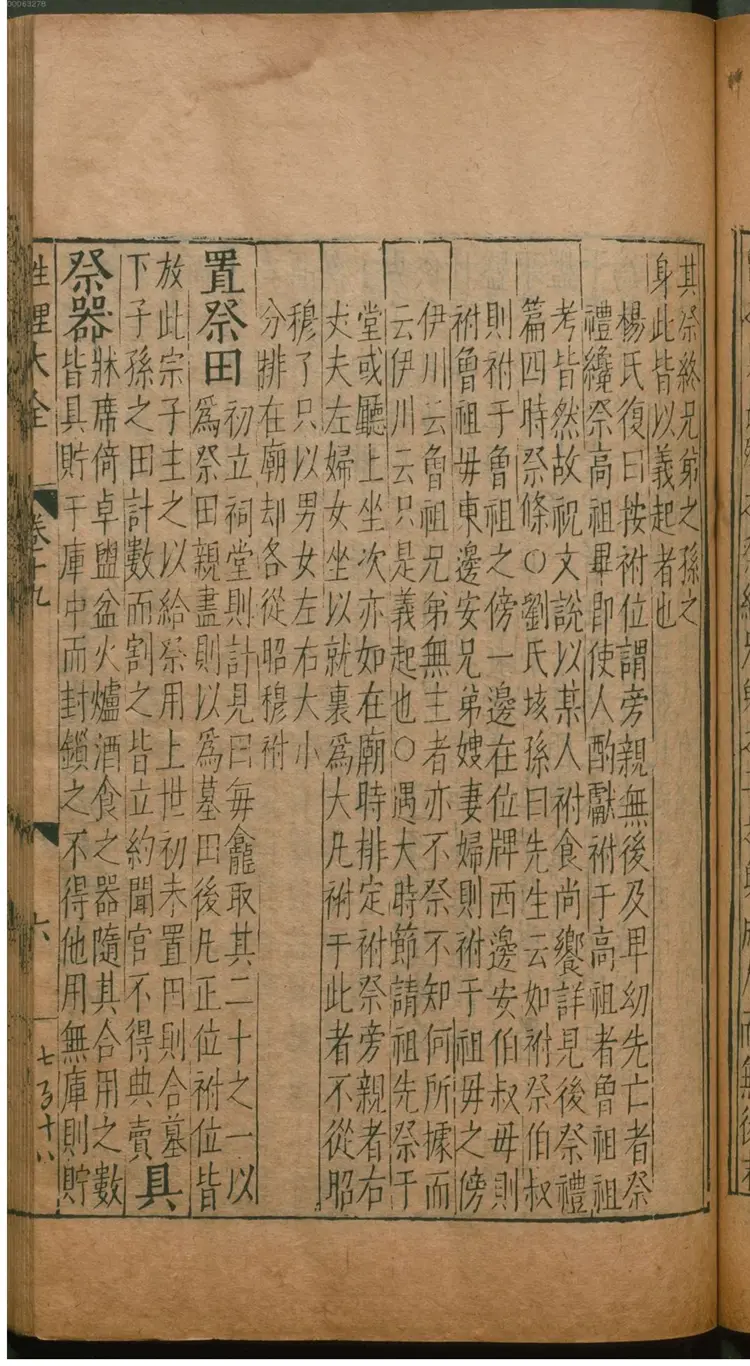 00063278
其祭終兄弟之孫之
身此皆以義起者也
楊氏復曰按祔位謂旁親無後及卑幼先亡者祭
禮纔祭高祖畢即使人酌獻祔于高祖者魯祖祖
考皆然故祝文說以某人祔食尚饗詳見後祭禮
篇四時祭條○劉氏垓孫曰先生云如祔祭伯叔
則祔于魯祖之傍一邊在位牌西邊安伯叔母則
祔魯祖母東邊安兄弟嫂妻婦則祔于祖母之傍
伊川云魯祖兄弟無主者亦不祭不知何所據而
云伊川云只是義起也○遇大時節請祖先祭于
堂或廳上坐次亦如在廟時排定祔祭旁親者右
丈夫左婦女坐以就裏爲大凡祔于此者不從昭
穆了只以男女左右大小
分排在廟却各從昭穆祔
置祭田
初立祠堂則計見田每龕取其二十之一以
爲祭田親盡則以爲墓田後凡正位祔位皆
放此宗子主之以給祭用上世初未置田則合墓
下子孫之田計數而割之皆立約聞官不得典賣
具
祭器
牀席倚卓盥盆火爐酒食之器隨其合用之數
皆具貯于庫中而封鎖之不得他用無庫則貯
性理大全
卷十九
六
七百十八